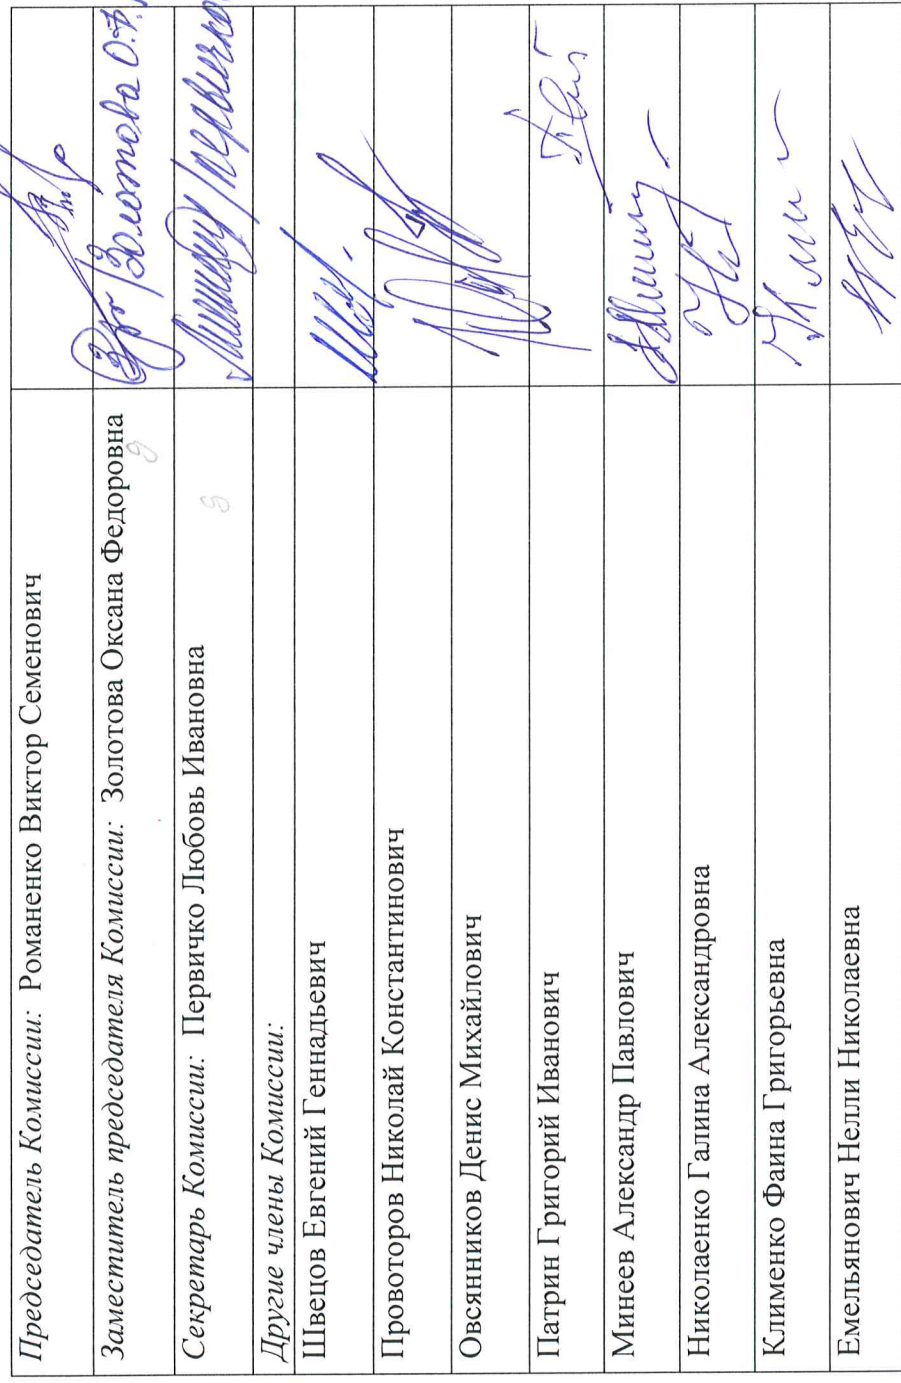 Председатель Комиссии: Романенко Виктор Семенович
Заместитель председателя Комиссии: Золотова Оксана Федоровна
Золотова О.Ф.
Секретарь Комиссии: Первичко Любовь Ивановна
Первичко
Другие члены Комиссии:
Швецов Евгений Геннадьевич
Провоторов Николай Константинович
Овсянников Денис Михайлович
Патрин Григорий Иванович
Минеев Александр Павлович
Николаенко Галина Александровна
Клименко Фаина Григорьевна
Емельянович Нелли Николаевна